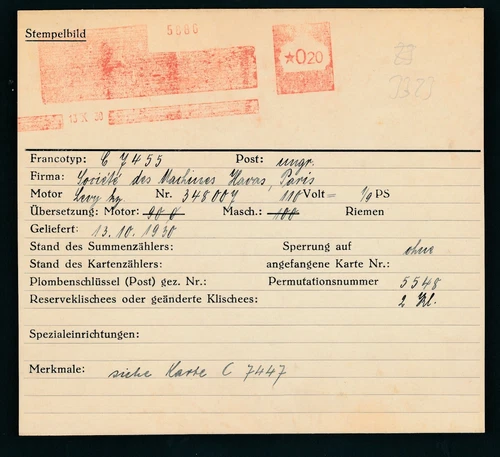 Stempelbild
5686
★020
13 X 30
Francotyp: C 7455 Post: ungr.
Firma: Société des Machines Havas, Paris
Motor Levy hy Nr. 348007 110 Volt = 1/9 PS
Übersetzung: Motor: 90 0 Masch.: 100 Riemen
Geliefert: 13.10.1930
Stand des Summenzählers: Sperrung auf ohne
Stand des Kartenzählers: angefangene Karte Nr.:
Plombenschlüssel (Post) gez. Nr.: Permutationsnummer 5548
Reserveklischees oder geänderte Klischees: 2 Kl.
Spezialeinrichtungen:
Merkmale: siehe Karte C 7447